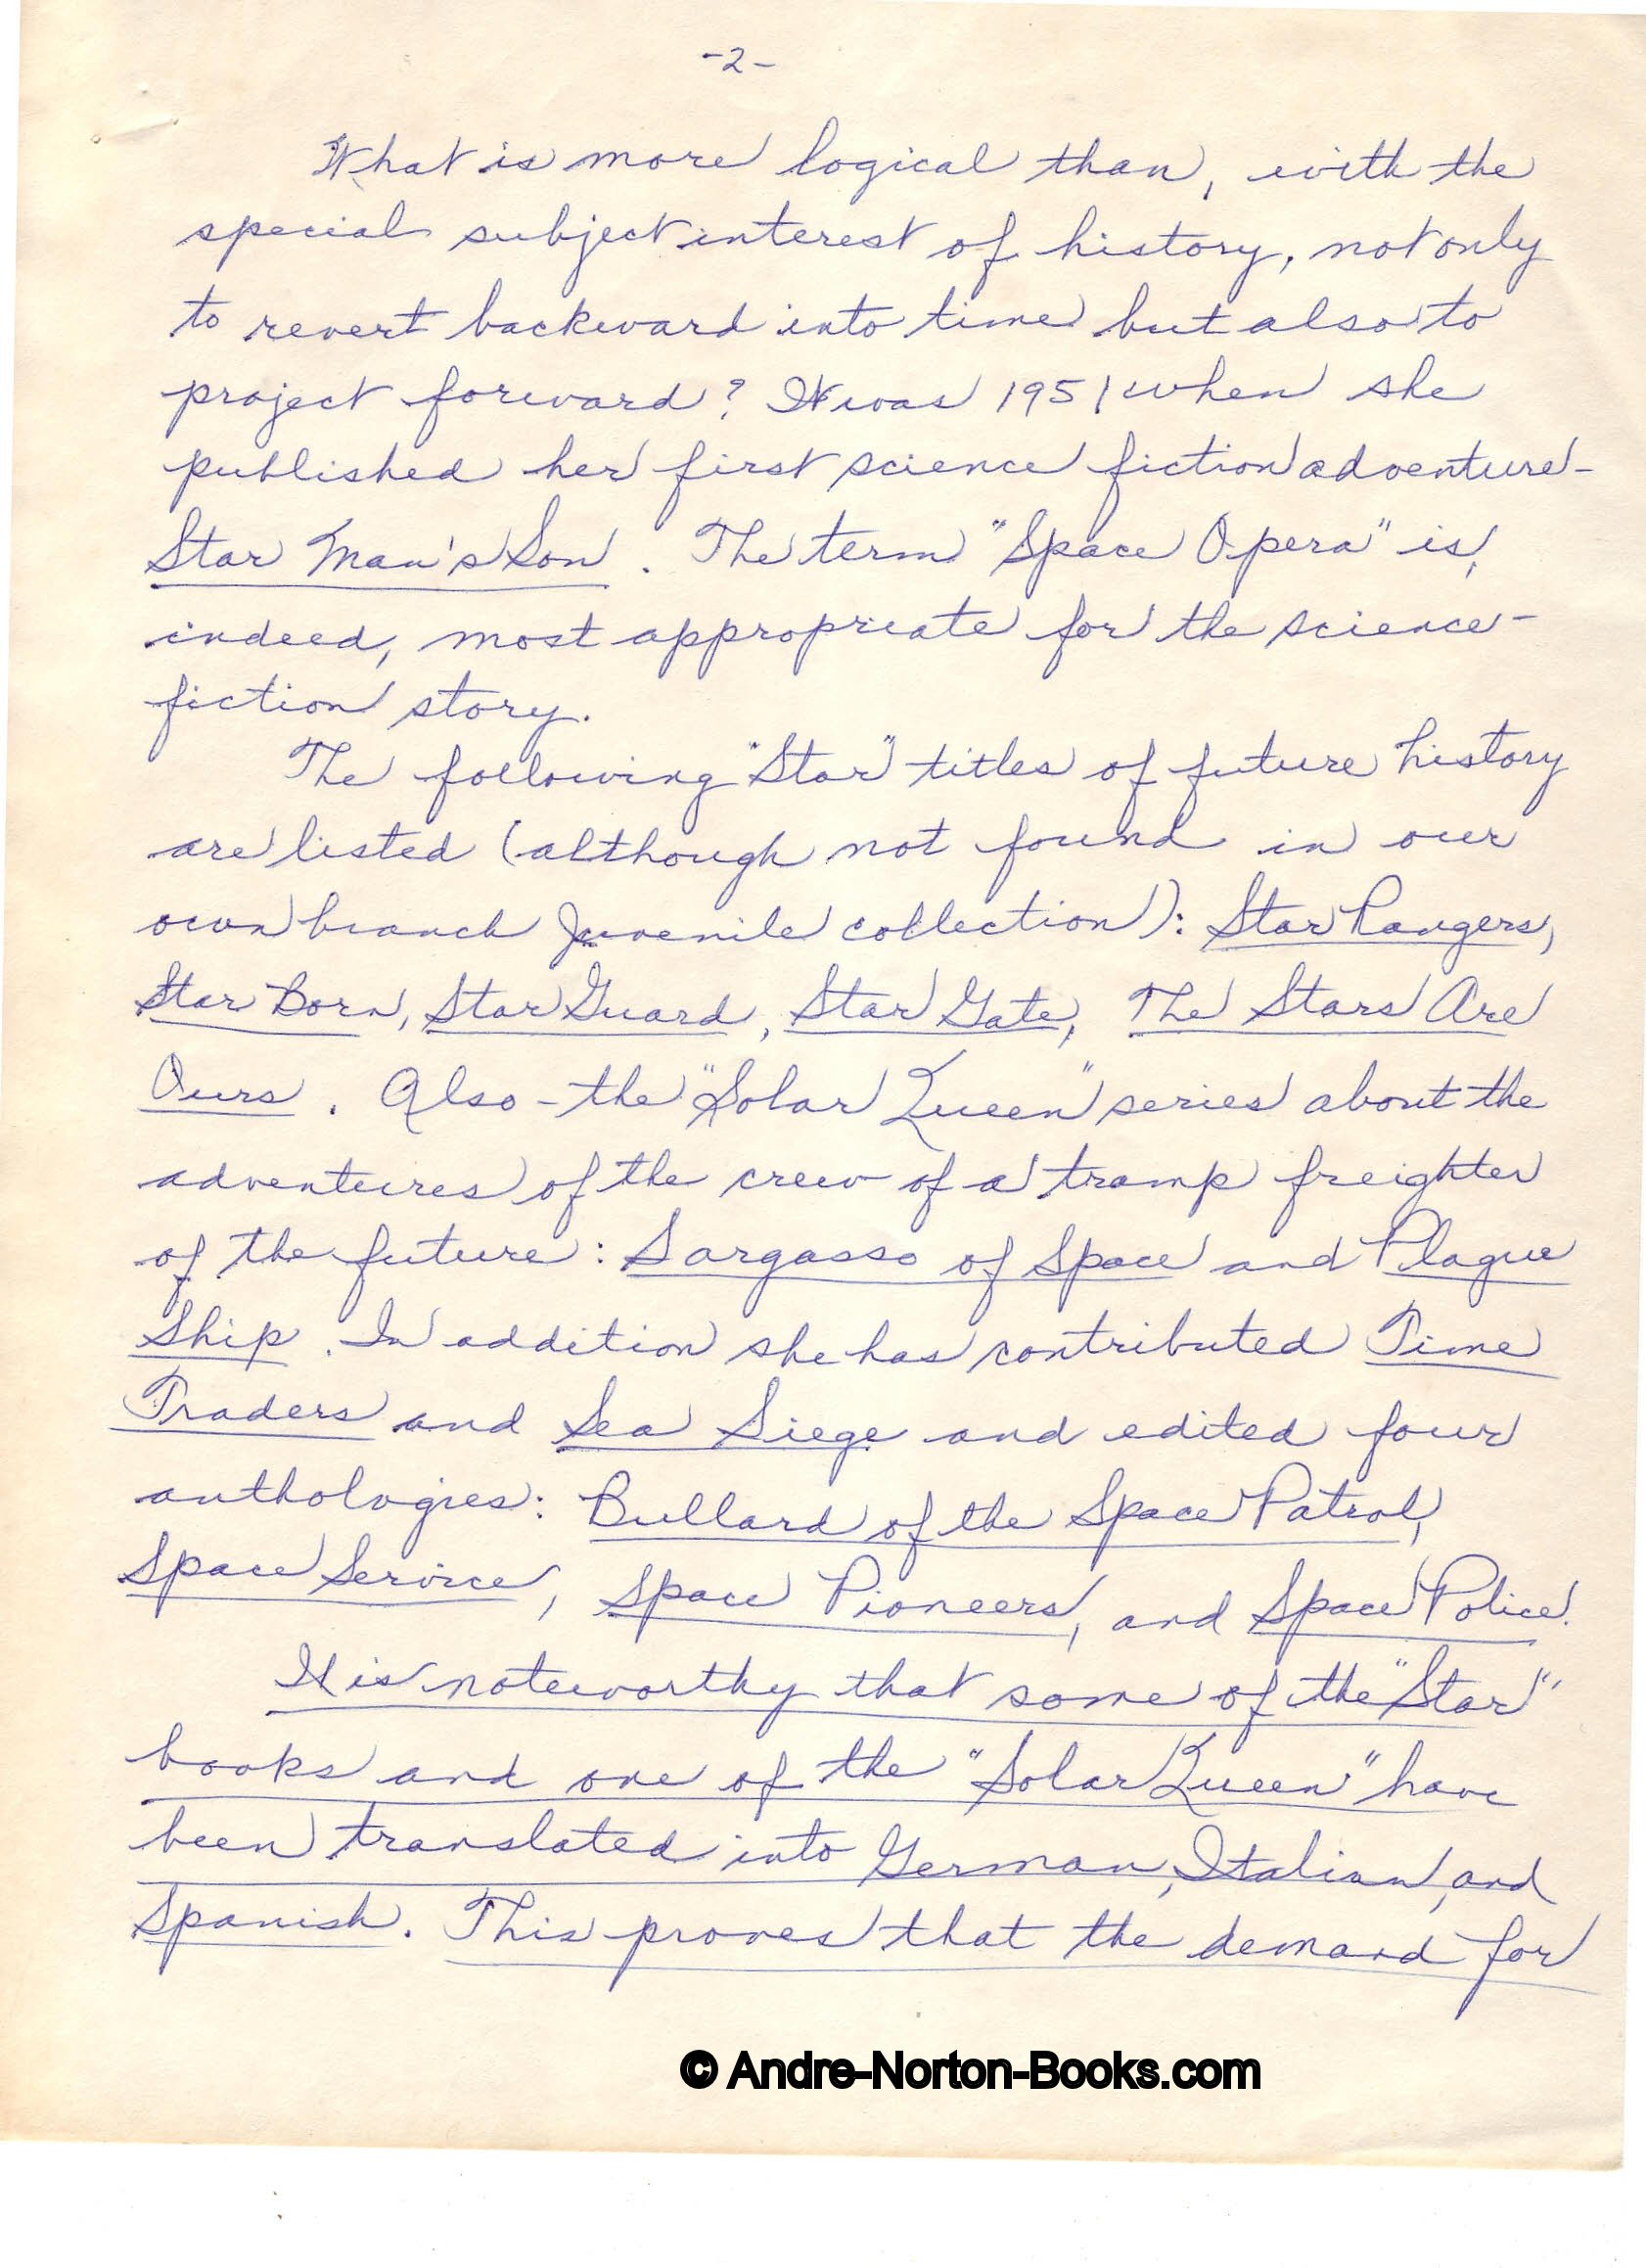 -2-
What is more logical than, with the
special subject interest of history, not only
to revert backward into time but also to
project forward? It was 1951 when she
published her first science fiction adventure-
Star Man's Son. The term "Space Opera" is,
indeed, most appropriate for the science-
fiction story.
The following "Star" titles of future history
are listed (although not found in our
own branch Juvenile collection): Star Rangers,
Star Born, Star Guard, Star Gate, The Stars Are
Ours. Also - the "Solar Queen" series about the
adventures of the crew of a tramp freighter
of the future: Sargasso of Space and Plague
Ship. In addition she has contributed Time
Traders and Sea Siege and edited four
anthologies: Bullard of the Space Patrol,
Space Service, Space Pioneers, and Space Police.
It is noteworthy that some of the "Star"
books and one of the "Solar Queen" have
been translated into German, Italian, and
Spanish. This proves that the demand for
© Andre-Norton-Books.com